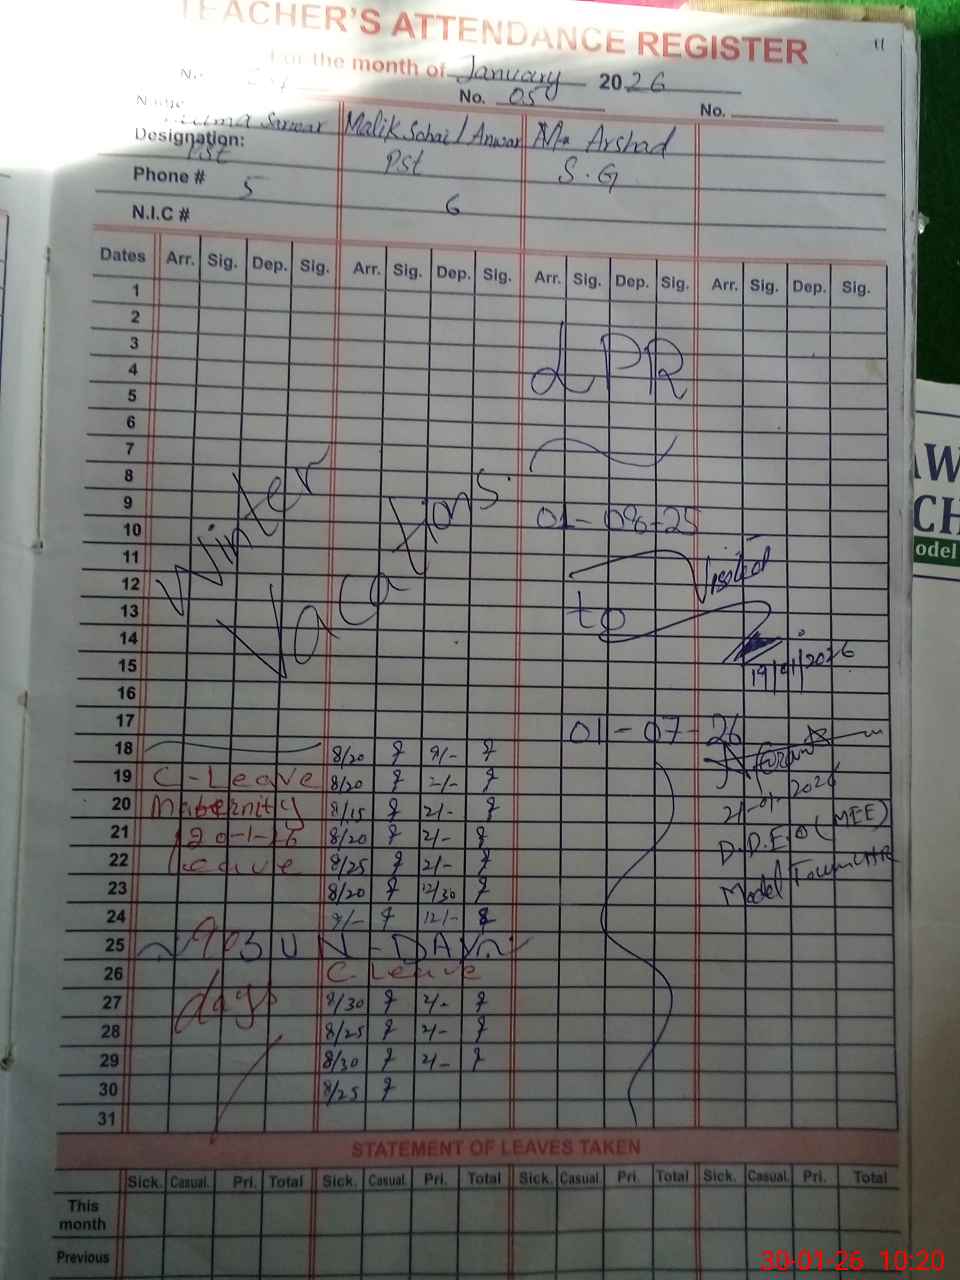 TEACHER'S ATTENDANCE REGISTER
11
For the month of January 2026
No. 05 No.
Sarwar Malik Sohail Anwar M. Arshad
Designation: Pst Pst S.G
Phone # 5 6
N.I.C #
Dates Arr. Sig. Dep. Sig. Arr. Sig. Dep. Sig. Arr. Sig. Dep. Sig. Arr. Sig. Dep. Sig.
1
2
3
4
5
LPR
6
7
8
9
10
01-09-25
11
Winter Vacations.
12
Visited
13
to
14
15
19/01/2026
16
17
01-07-26
18 8/20 9/-
19 C-Leave 8/20 2/-
20 Maternity 8/15 2/- 21-01-2026
21 20-1-26 8/20 2/- D.D.E.O (MEE)
22 Leave 8/25 2/- Model Town LHR
23 8/20 12/30
24 9/- 12/-
25 SUN-DAY
26 C Leave
27 days 8/30 2/-
28 8/25 2/-
29 8/30 2/-
30 8/25
31
STATEMENT OF LEAVES TAKEN
Sick. Casual. Pri. Total Sick. Casual. Pri. Total Sick. Casual. Pri. Total Sick. Casual. Pri. Total
This month
Previous
AW
CH
odel
30-01-26 10:20